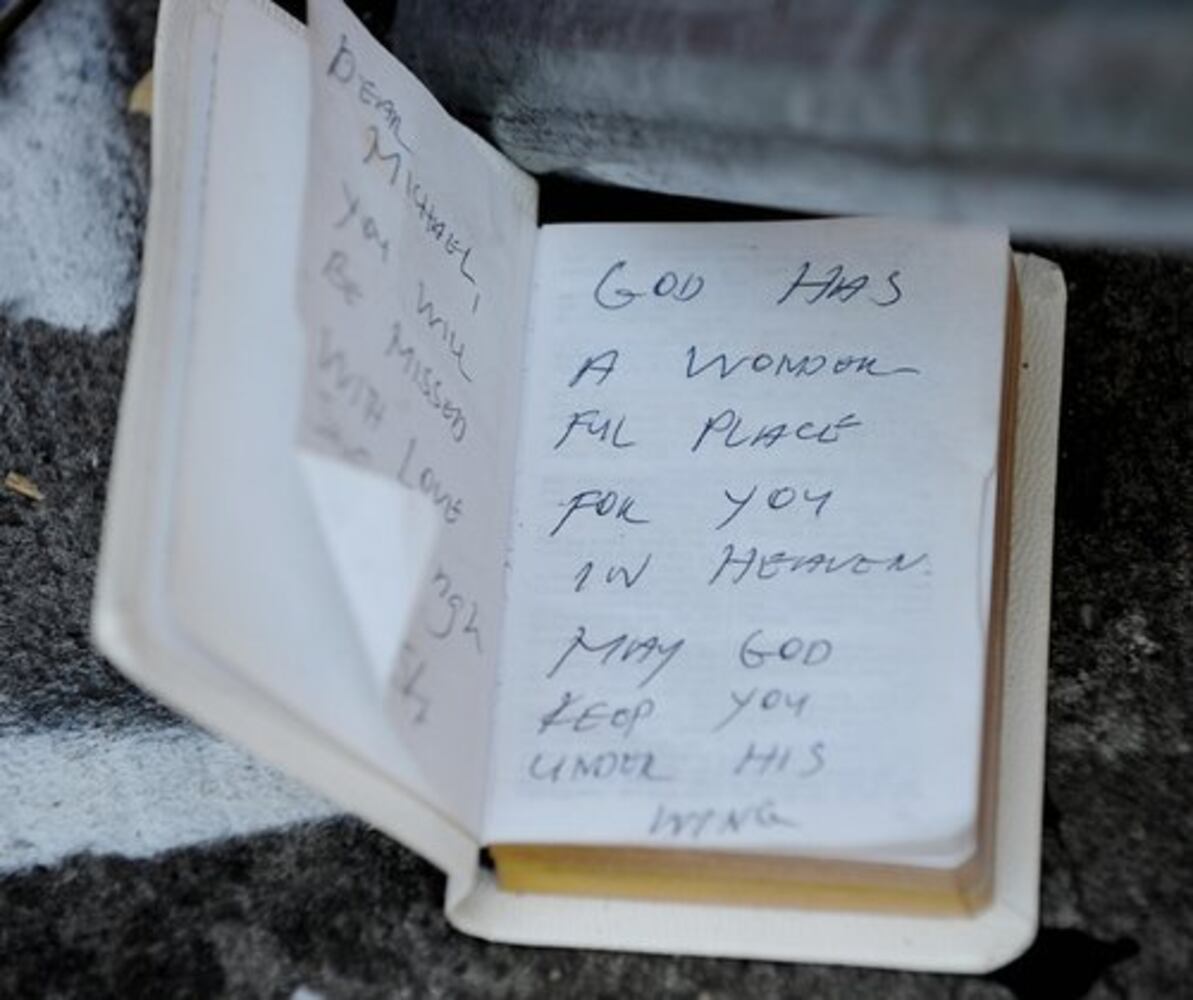 DEAR
MICHAEL,
YOU WILL
BE MISSED
WITH
LOVE
GOD HAS
A WONDER
FUL PLACE
FOR YOU
IN HEAVEN.
MAY GOD
KEEP YOU
UNDER HIS
WING